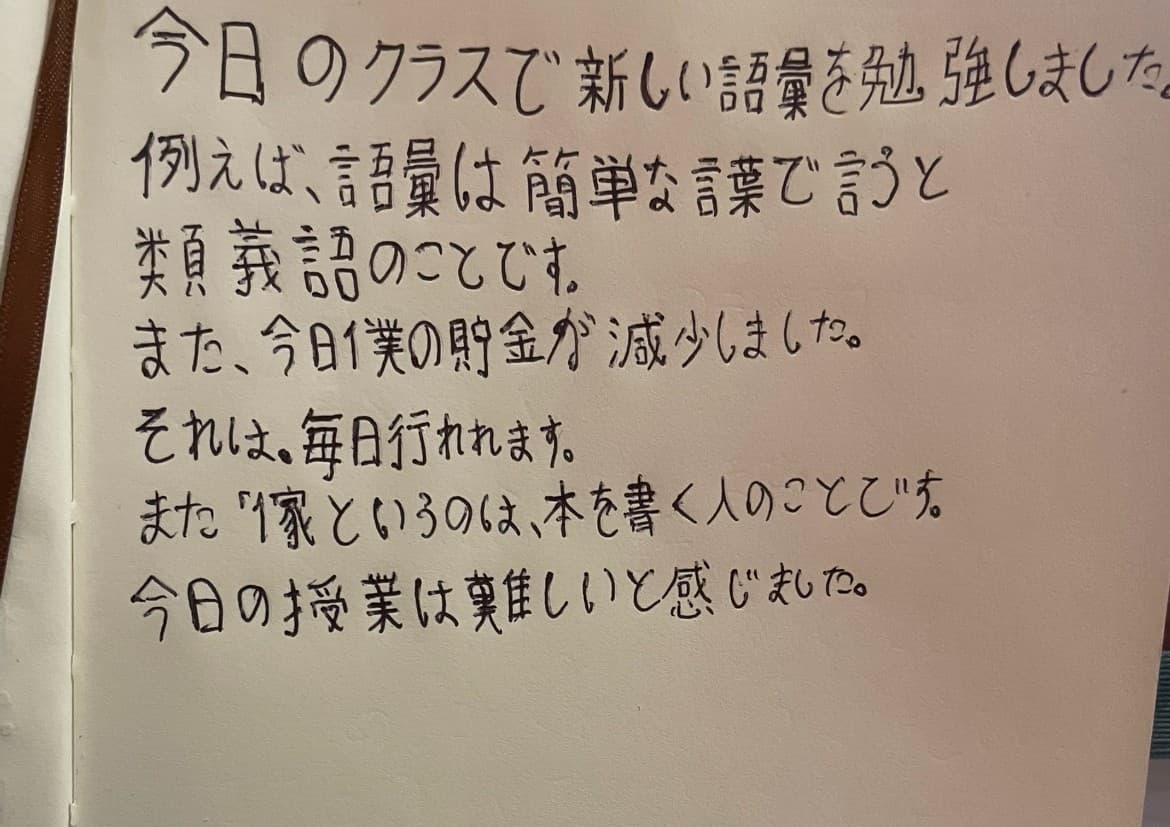 今日のクラスで新しい語彙を勉強しました。
例えば、語彙は簡単な言葉で言うと
類義語のことです。
また、今日僕の貯金が減少しました。
それは。毎日行れれます。
また 作家というのは、本を書く人のことです。
今日の授業は難しいと感じました。